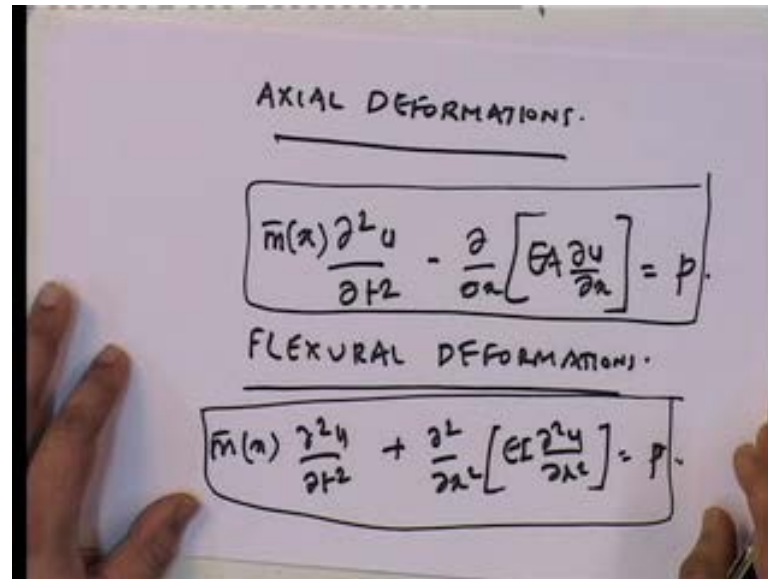 AXIAL DEFORMATIONS.
m̄(x) ∂²u/∂t² - ∂/∂x [EA ∂u/∂x] = p.
FLEXURAL DEFORMATIONS.
m̄(x) ∂²u/∂t² + ∂²/∂x² [EI ∂²u/∂x²] = p.